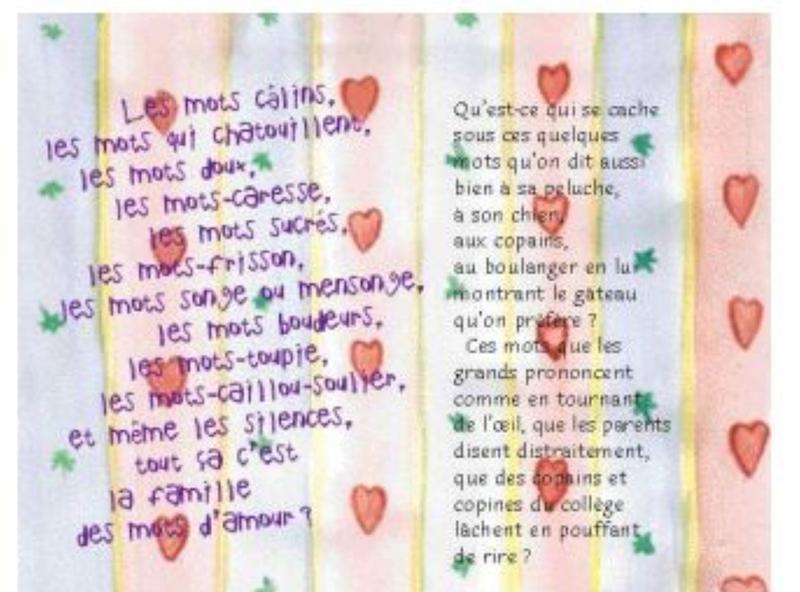 Les mots câlins,
les mots qui chatouillent,
les mots doux,
les mots-caresse,
les mots sucrés,
les mots-frisson,
les mots songe ou mensonge,
les mots boudeurs,
les mots-toupie,
les mots-caillou-soulier,
et même les silences,
tout ça c'est
la famille
des mots d'amour ?
Qu'est-ce qui se cache
sous ces quelques
mots qu'on dit aussi
bien à sa peluche,
à son chien,
aux copains,
au boulanger en lui
montrant le gâteau
qu'on préfère ?
Ces mots que les
grands prononcent
comme en tournant
de l'œil, que les parents
disent distraitement,
que des copains et
copines du collège
lâchent en pouffant
de rire ?